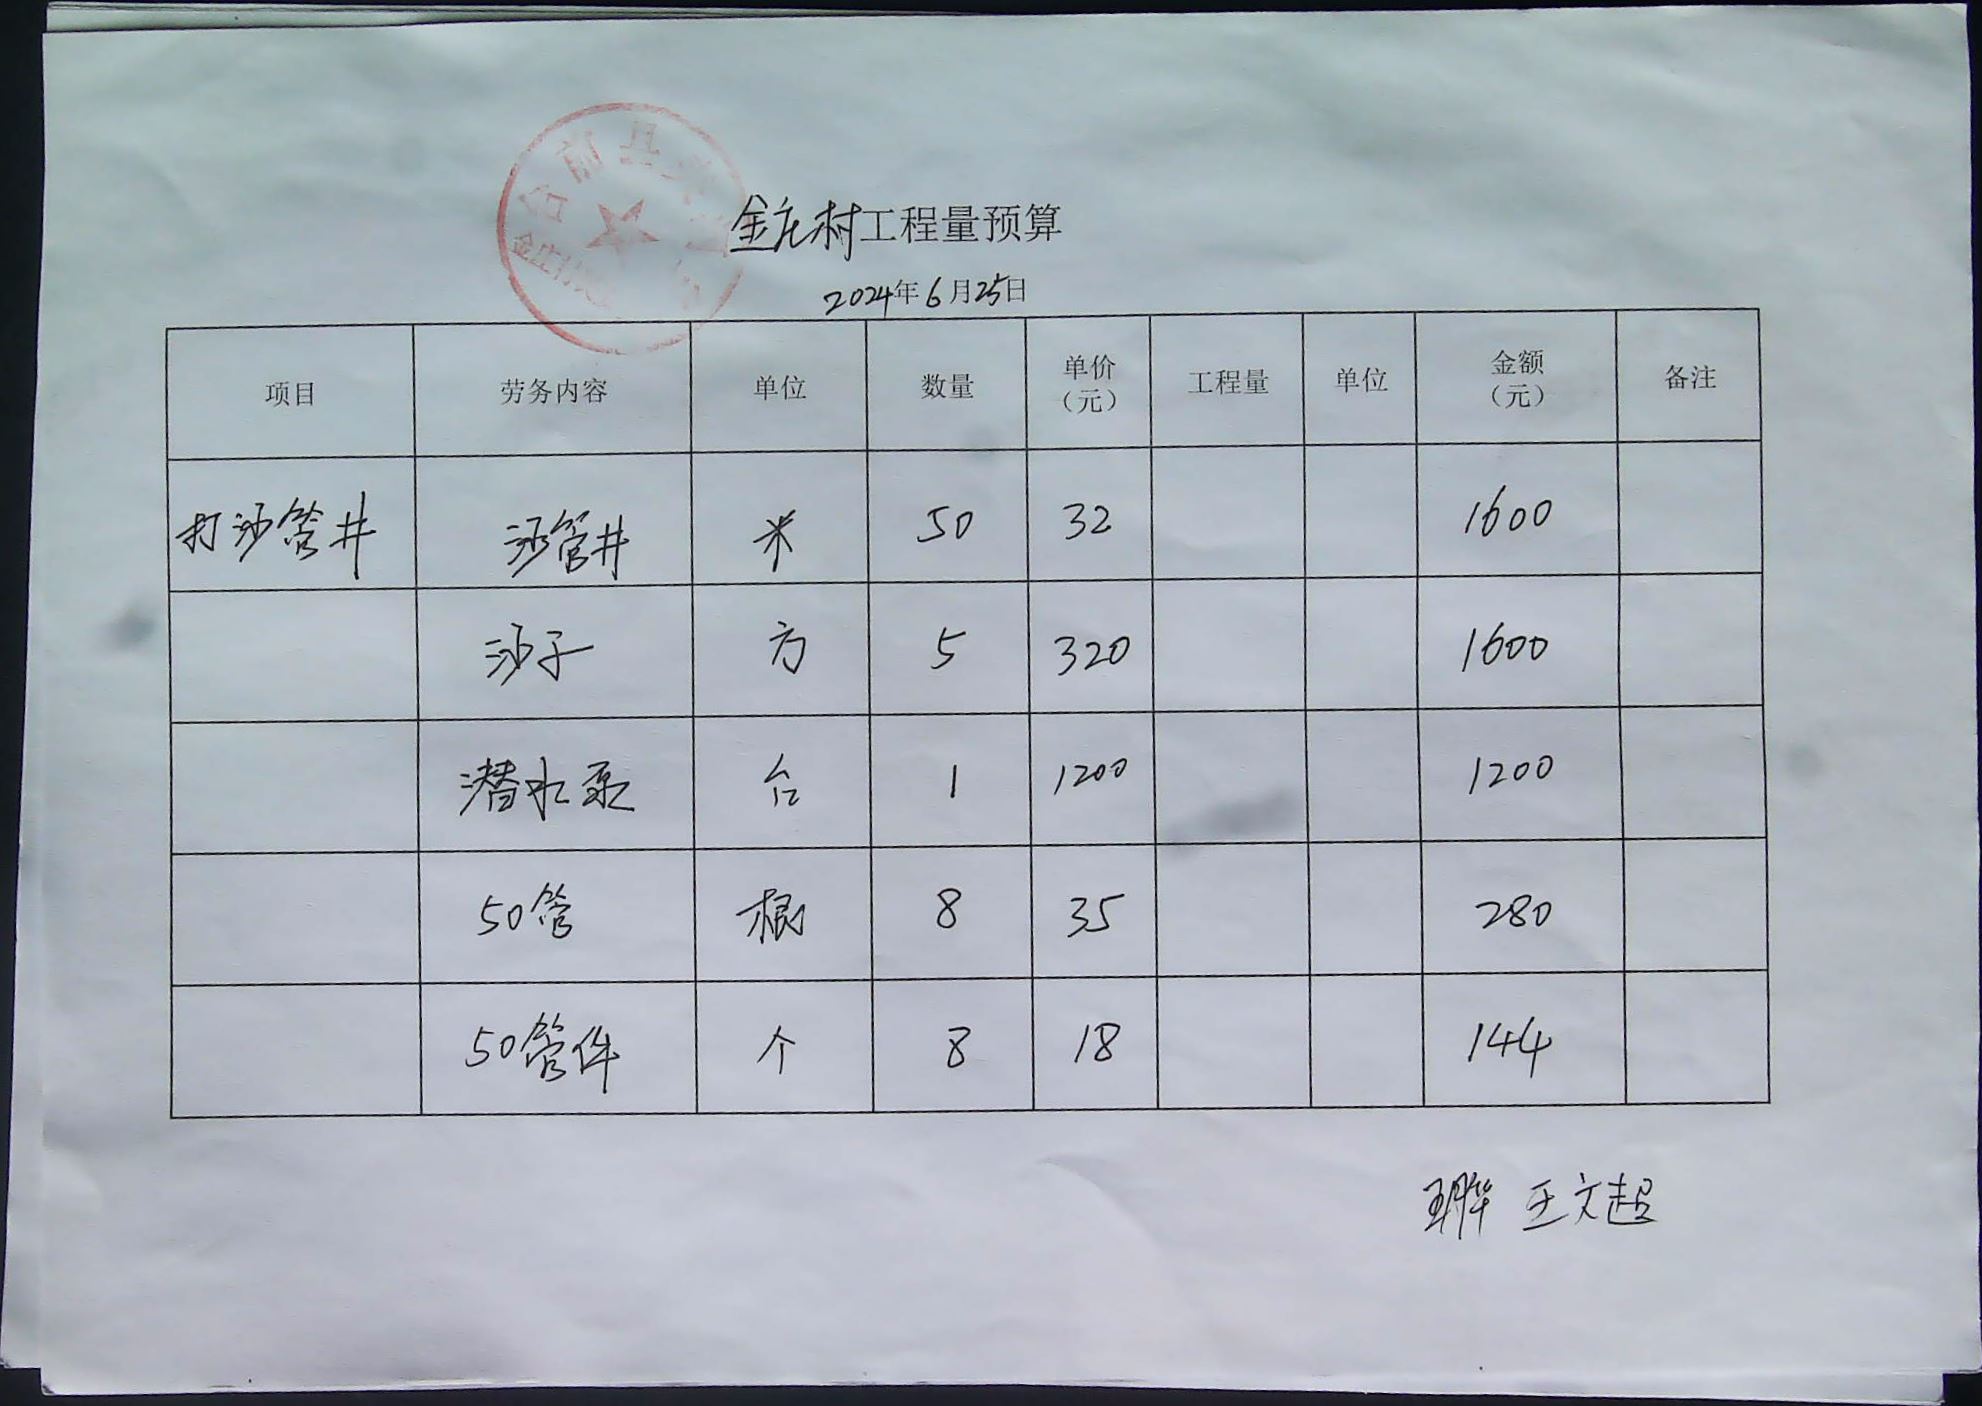 台前县
金庄村工程量预算
2024年6月25日
项目 劳务内容 单位 数量 单价（元） 工程量 单位 金额（元） 备注
打沙管井 沙管井 米 50 32 1600
沙子 方 5 320 1600
潜水泵 台 1 1200 1200
50管 根 8 35 280
50管件 个 8 18 144
王文超